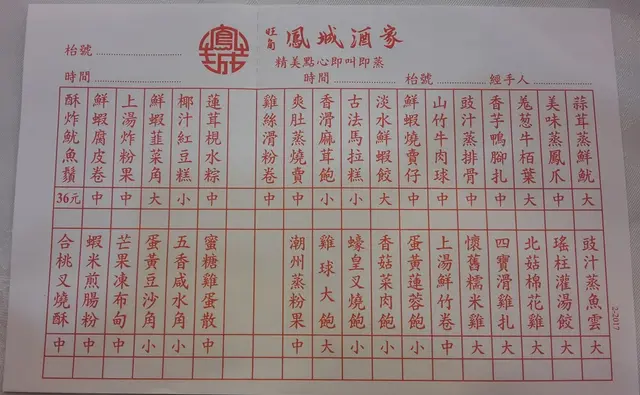 旺角 鳳城酒家
精美點心即叫即蒸
枱號
時間
時間
枱號
經手人
蒜茸蒸鮮魷 大
美味蒸鳳爪 中
羗葱牛栢葉 大
香芋鴨腳扎 中
豉汁蒸排骨 中
山竹牛肉球 中
鮮蝦燒賣仔 中
淡水鮮蝦餃 大
古法馬拉糕 小
香滑麻茸飽 小
爽肚蒸燒賣 中
雞絲滑粉卷 中
蓮茸梘水粽 中
椰汁紅豆糕 小
鮮蝦韮菜角 大
上湯炸粉果 中
鮮蝦腐皮卷 中
酥炸魷魚鬚 36元
豉汁蒸魚雲 大
瑤柱灌湯餃 大
北菇棉花雞 大
四寶滑雞扎 大
懷舊糯米雞 大
上湯鮮竹卷 中
蛋黃蓮蓉飽 小
香菇菜肉飽 小
蠔皇叉燒飽 小
雞球大飽 大
潮州蒸粉果 中
蜜糖雞蛋散 中
五香咸水角 小
蛋黃豆沙角 小
芒果凍布甸 中
蝦米煎腸粉 中
合桃叉燒酥 中
2-2017